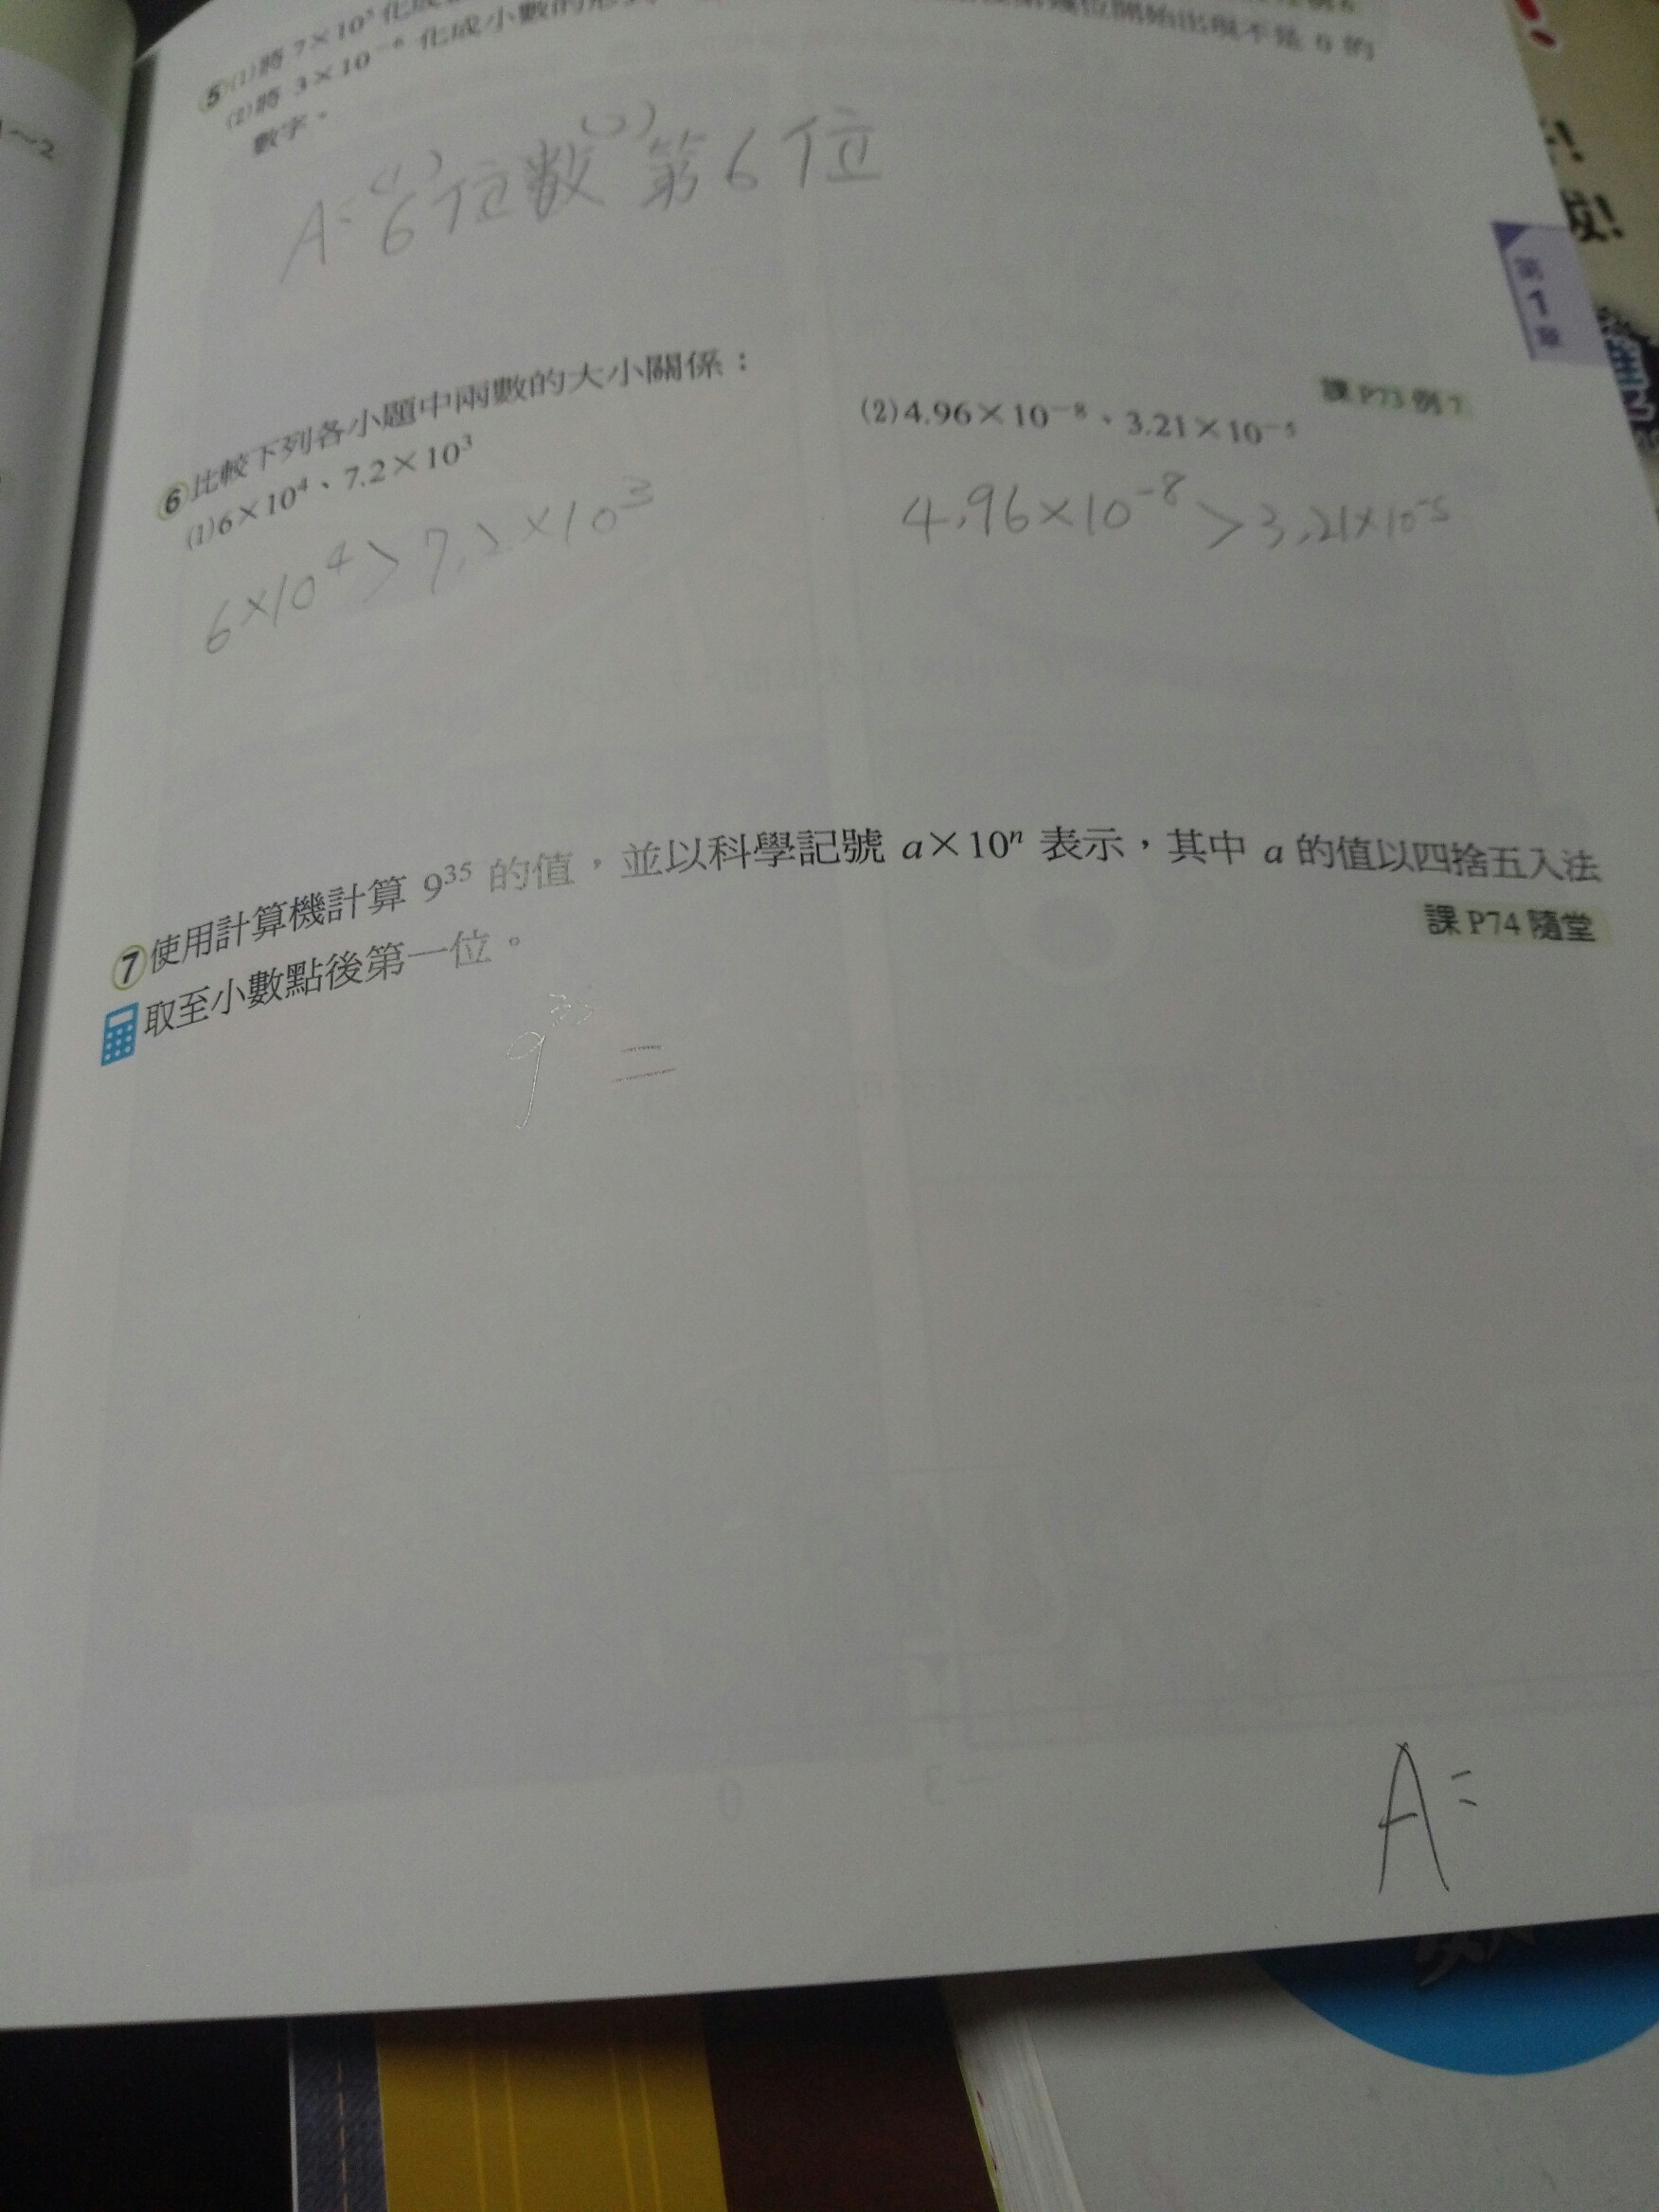 1～2
⑤(1)將 7×10⁵ 化成
(2)將 3×10⁻⁶ 化成小數的形式
開始出現不是 0 的
數字。
A= (1) 6位数 (2) 第6位
第1章
⑥比較下列各小題中兩數的大小關係：
課 P73 例 7
(1)6×10⁴、7.2×10³
(2)4.96×10⁻⁸、3.21×10⁻⁵
6×10⁴>7.2×10³
4.96×10⁻⁸>3.21×10⁻⁵
⑦使用計算機計算 9³⁵ 的值，並以科學記號 a×10ⁿ 表示，其中 a 的值以四捨五入法
取至小數點後第一位。
課 P74 隨堂
9³⁵ =
A=